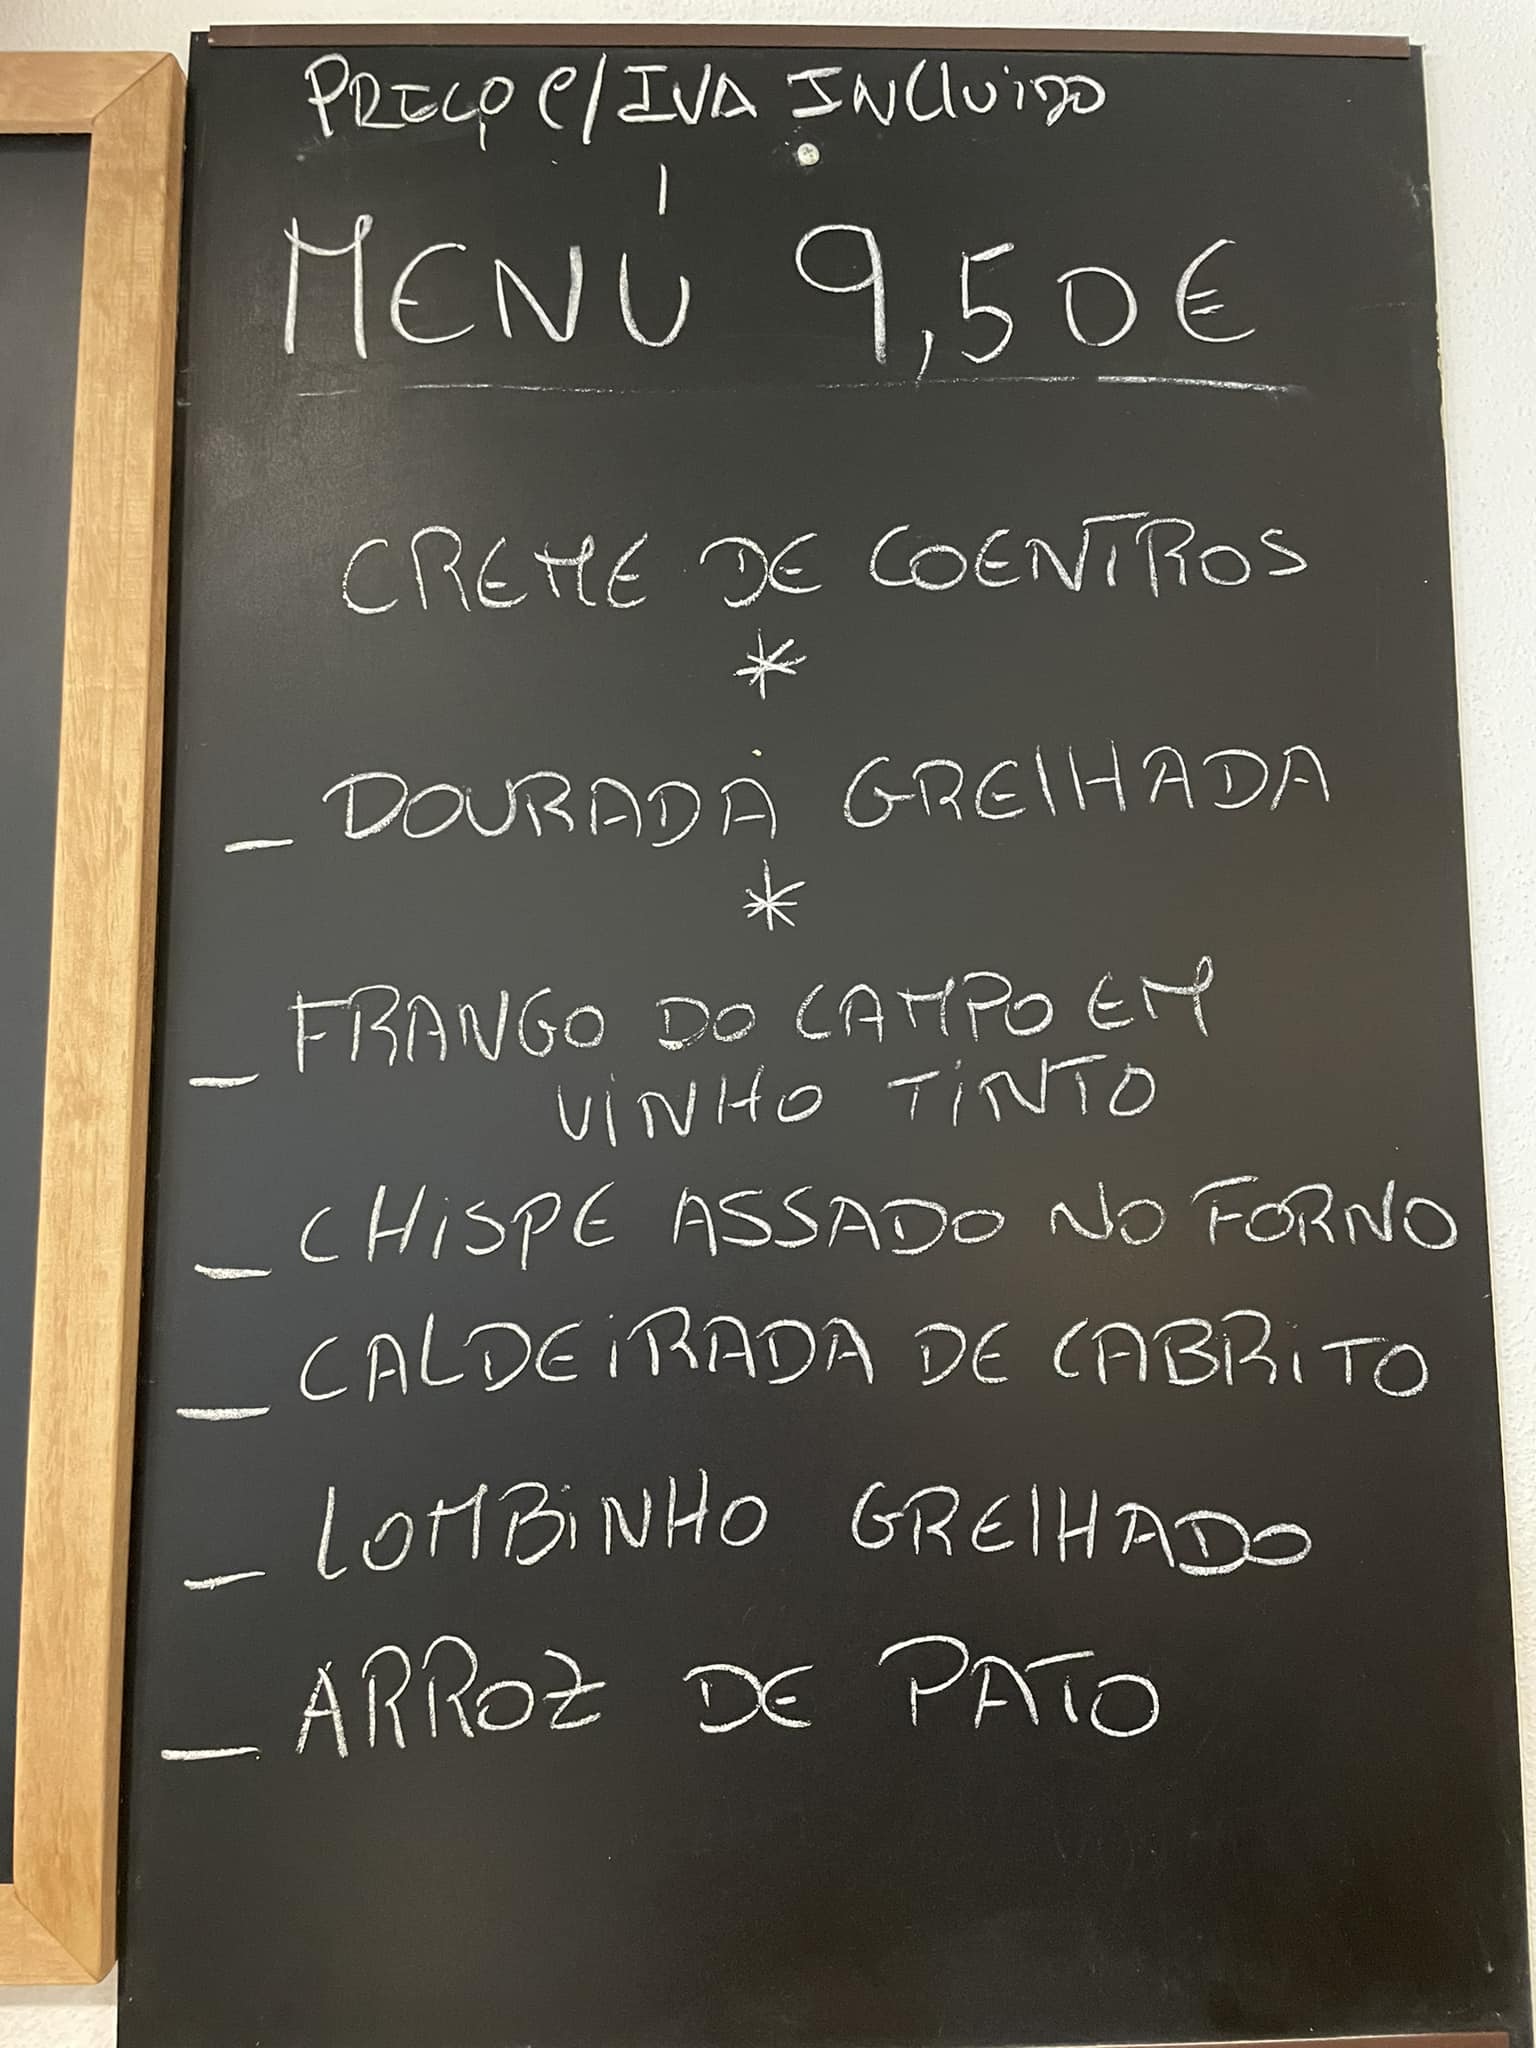 PREÇO C/IVA INCLUIDO
MENÚ 9,50€
CREME DE COENTROS
*
_ DOURADA GRELHADA
*
_ FRANGO DO CAMPO EM
VINHO TINTO
_ CHISPE ASSADO NO FORNO
_ CALDEIRADA DE CABRITO
_ LOMBINHO GRELHADO
_ ARROZ DE PATO